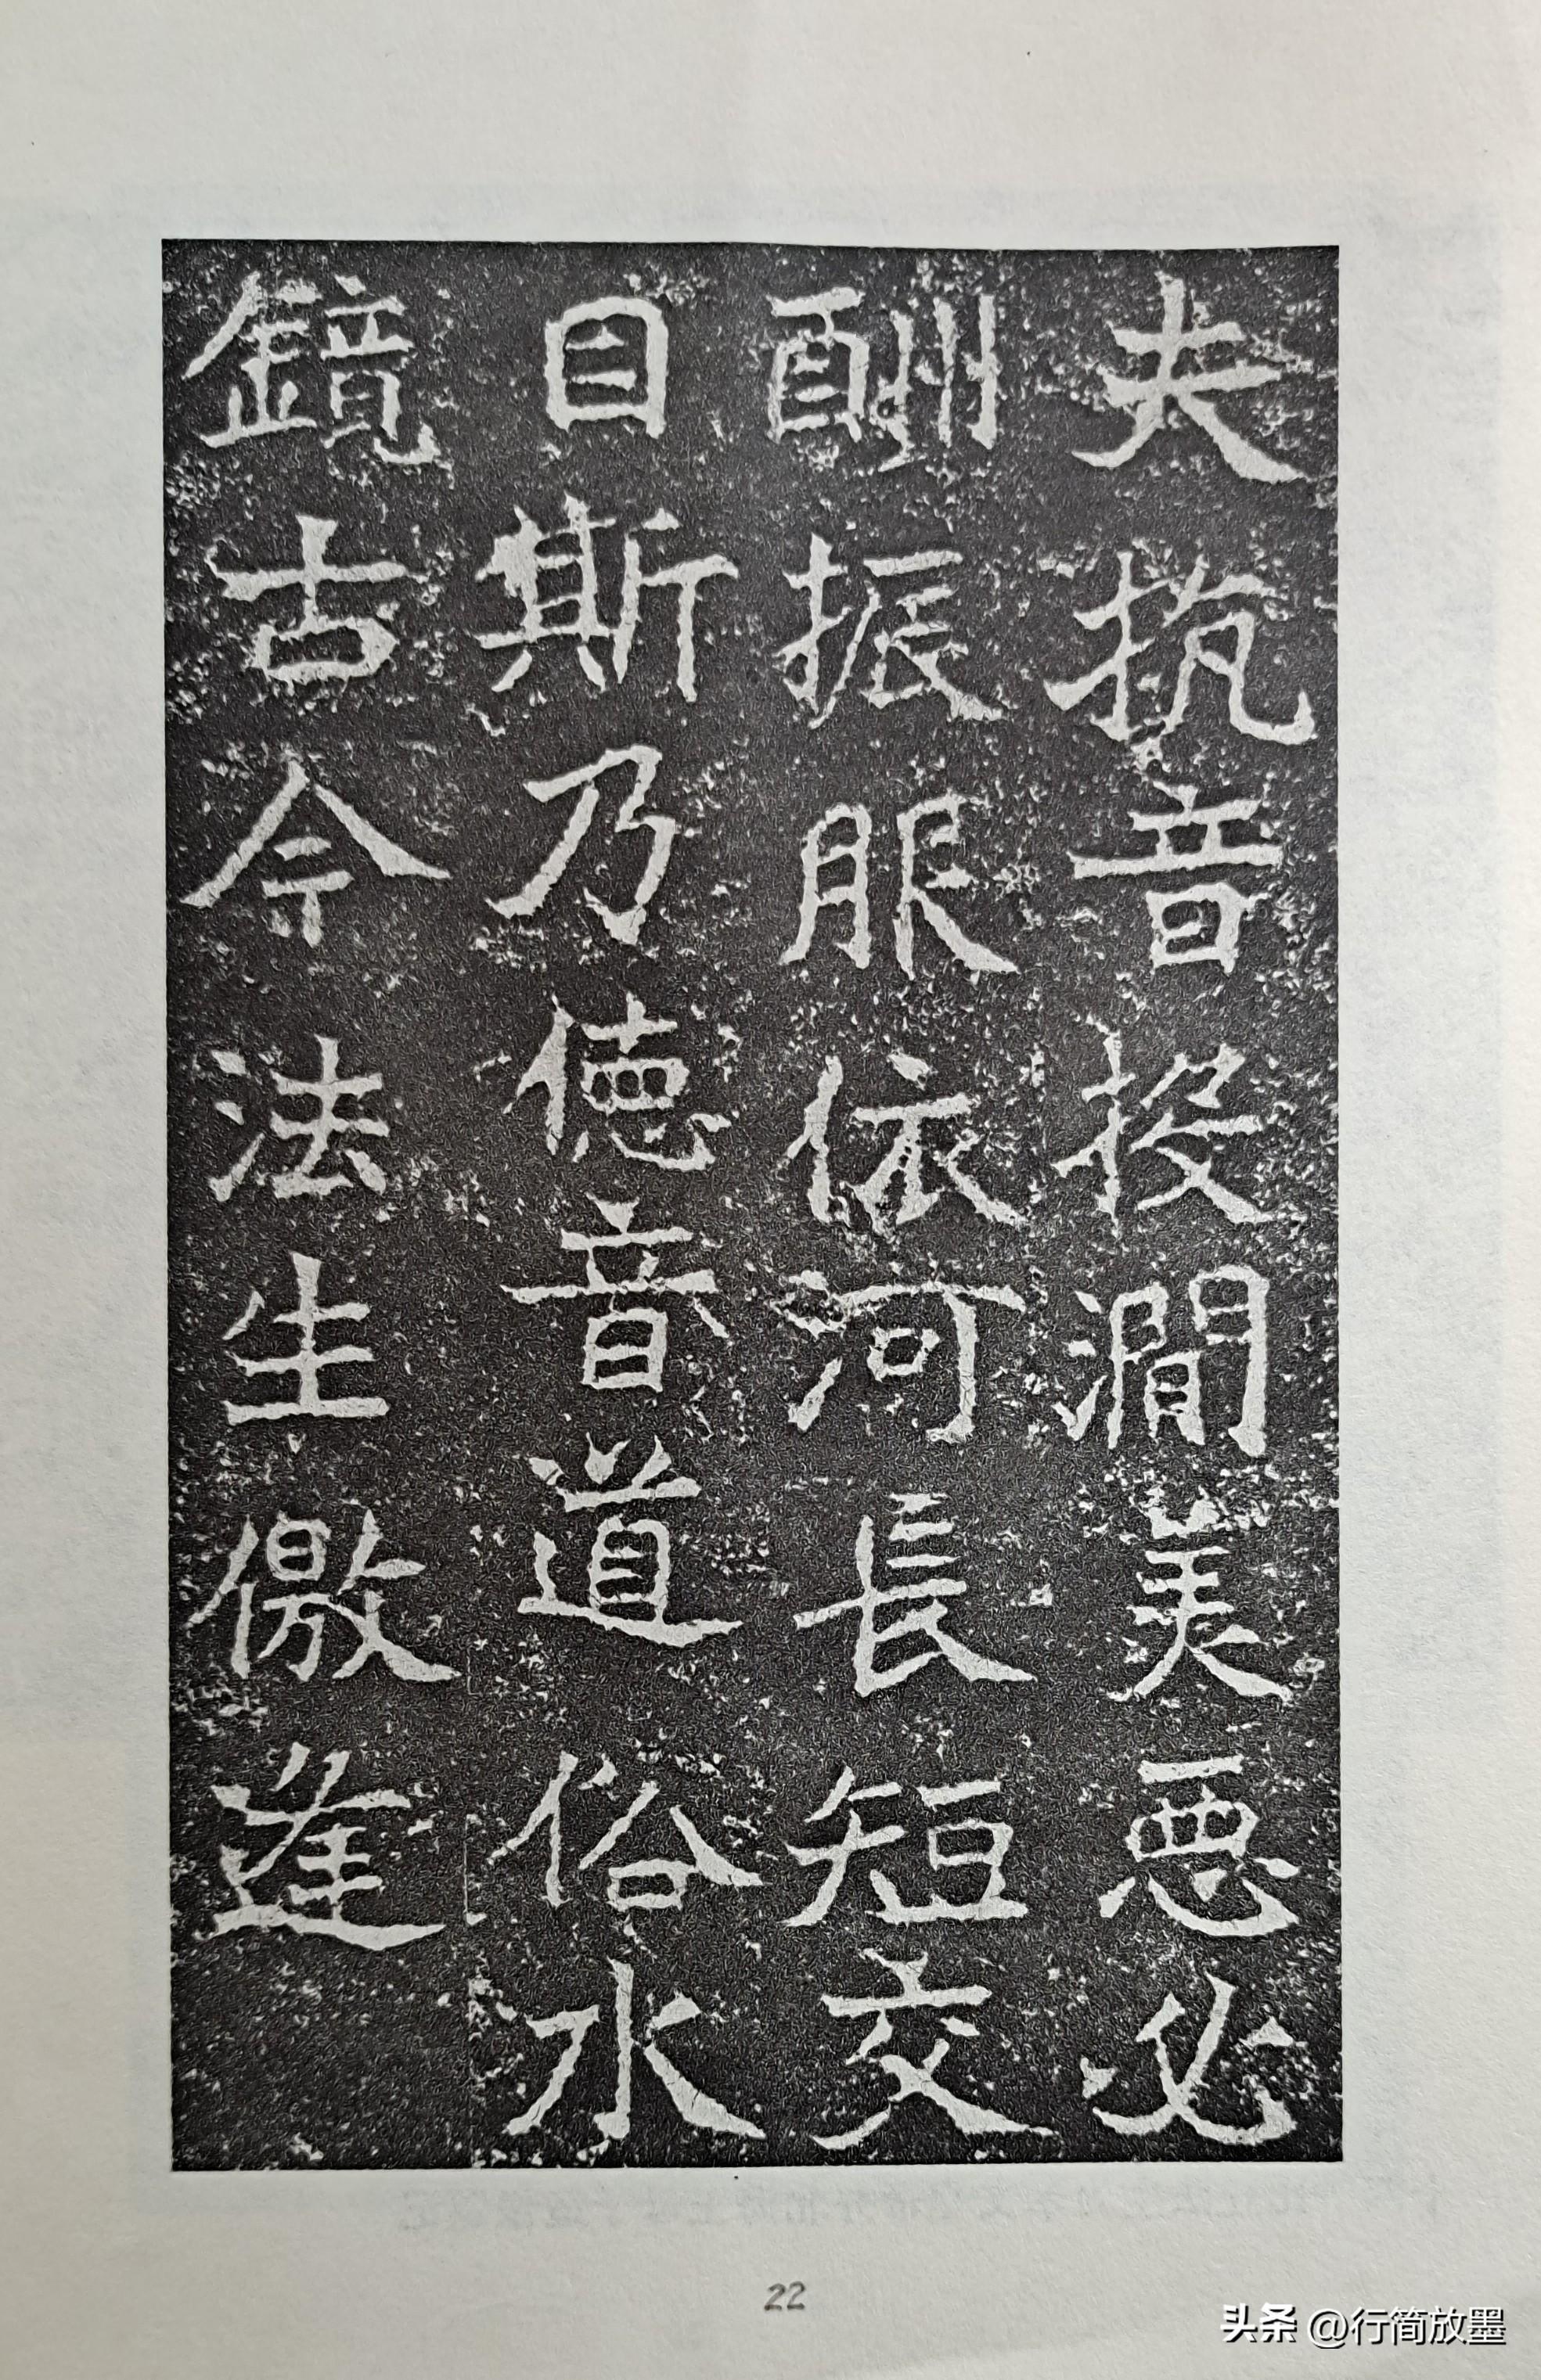 夫抗音投澗美惡必
酬振服依河長短交
目斯乃德音道俗水
鏡古今法生儌逢
22
头条 @行简放墨